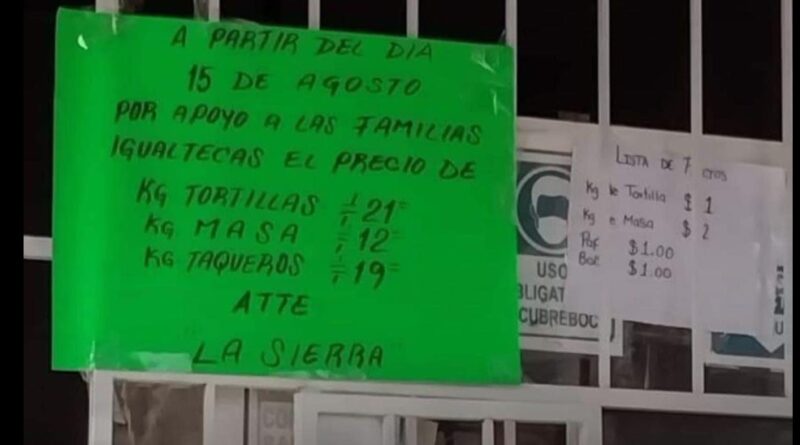 A PARTIR DEL DIA
15 DE AGOSTO
POR APOYO A LAS FAMILIAS
IGUALTECAS EL PRECIO DE
KG TORTILLAS 21=
KG MASA 12=
KG TAQUEROS 19=
ATTE
LA SIERRA
LISTA DE
Kg de Tortilla $ 1
Kg e Masa $ 2
$1.00
$1.00
USO
BLIGAT
CUBREBOC